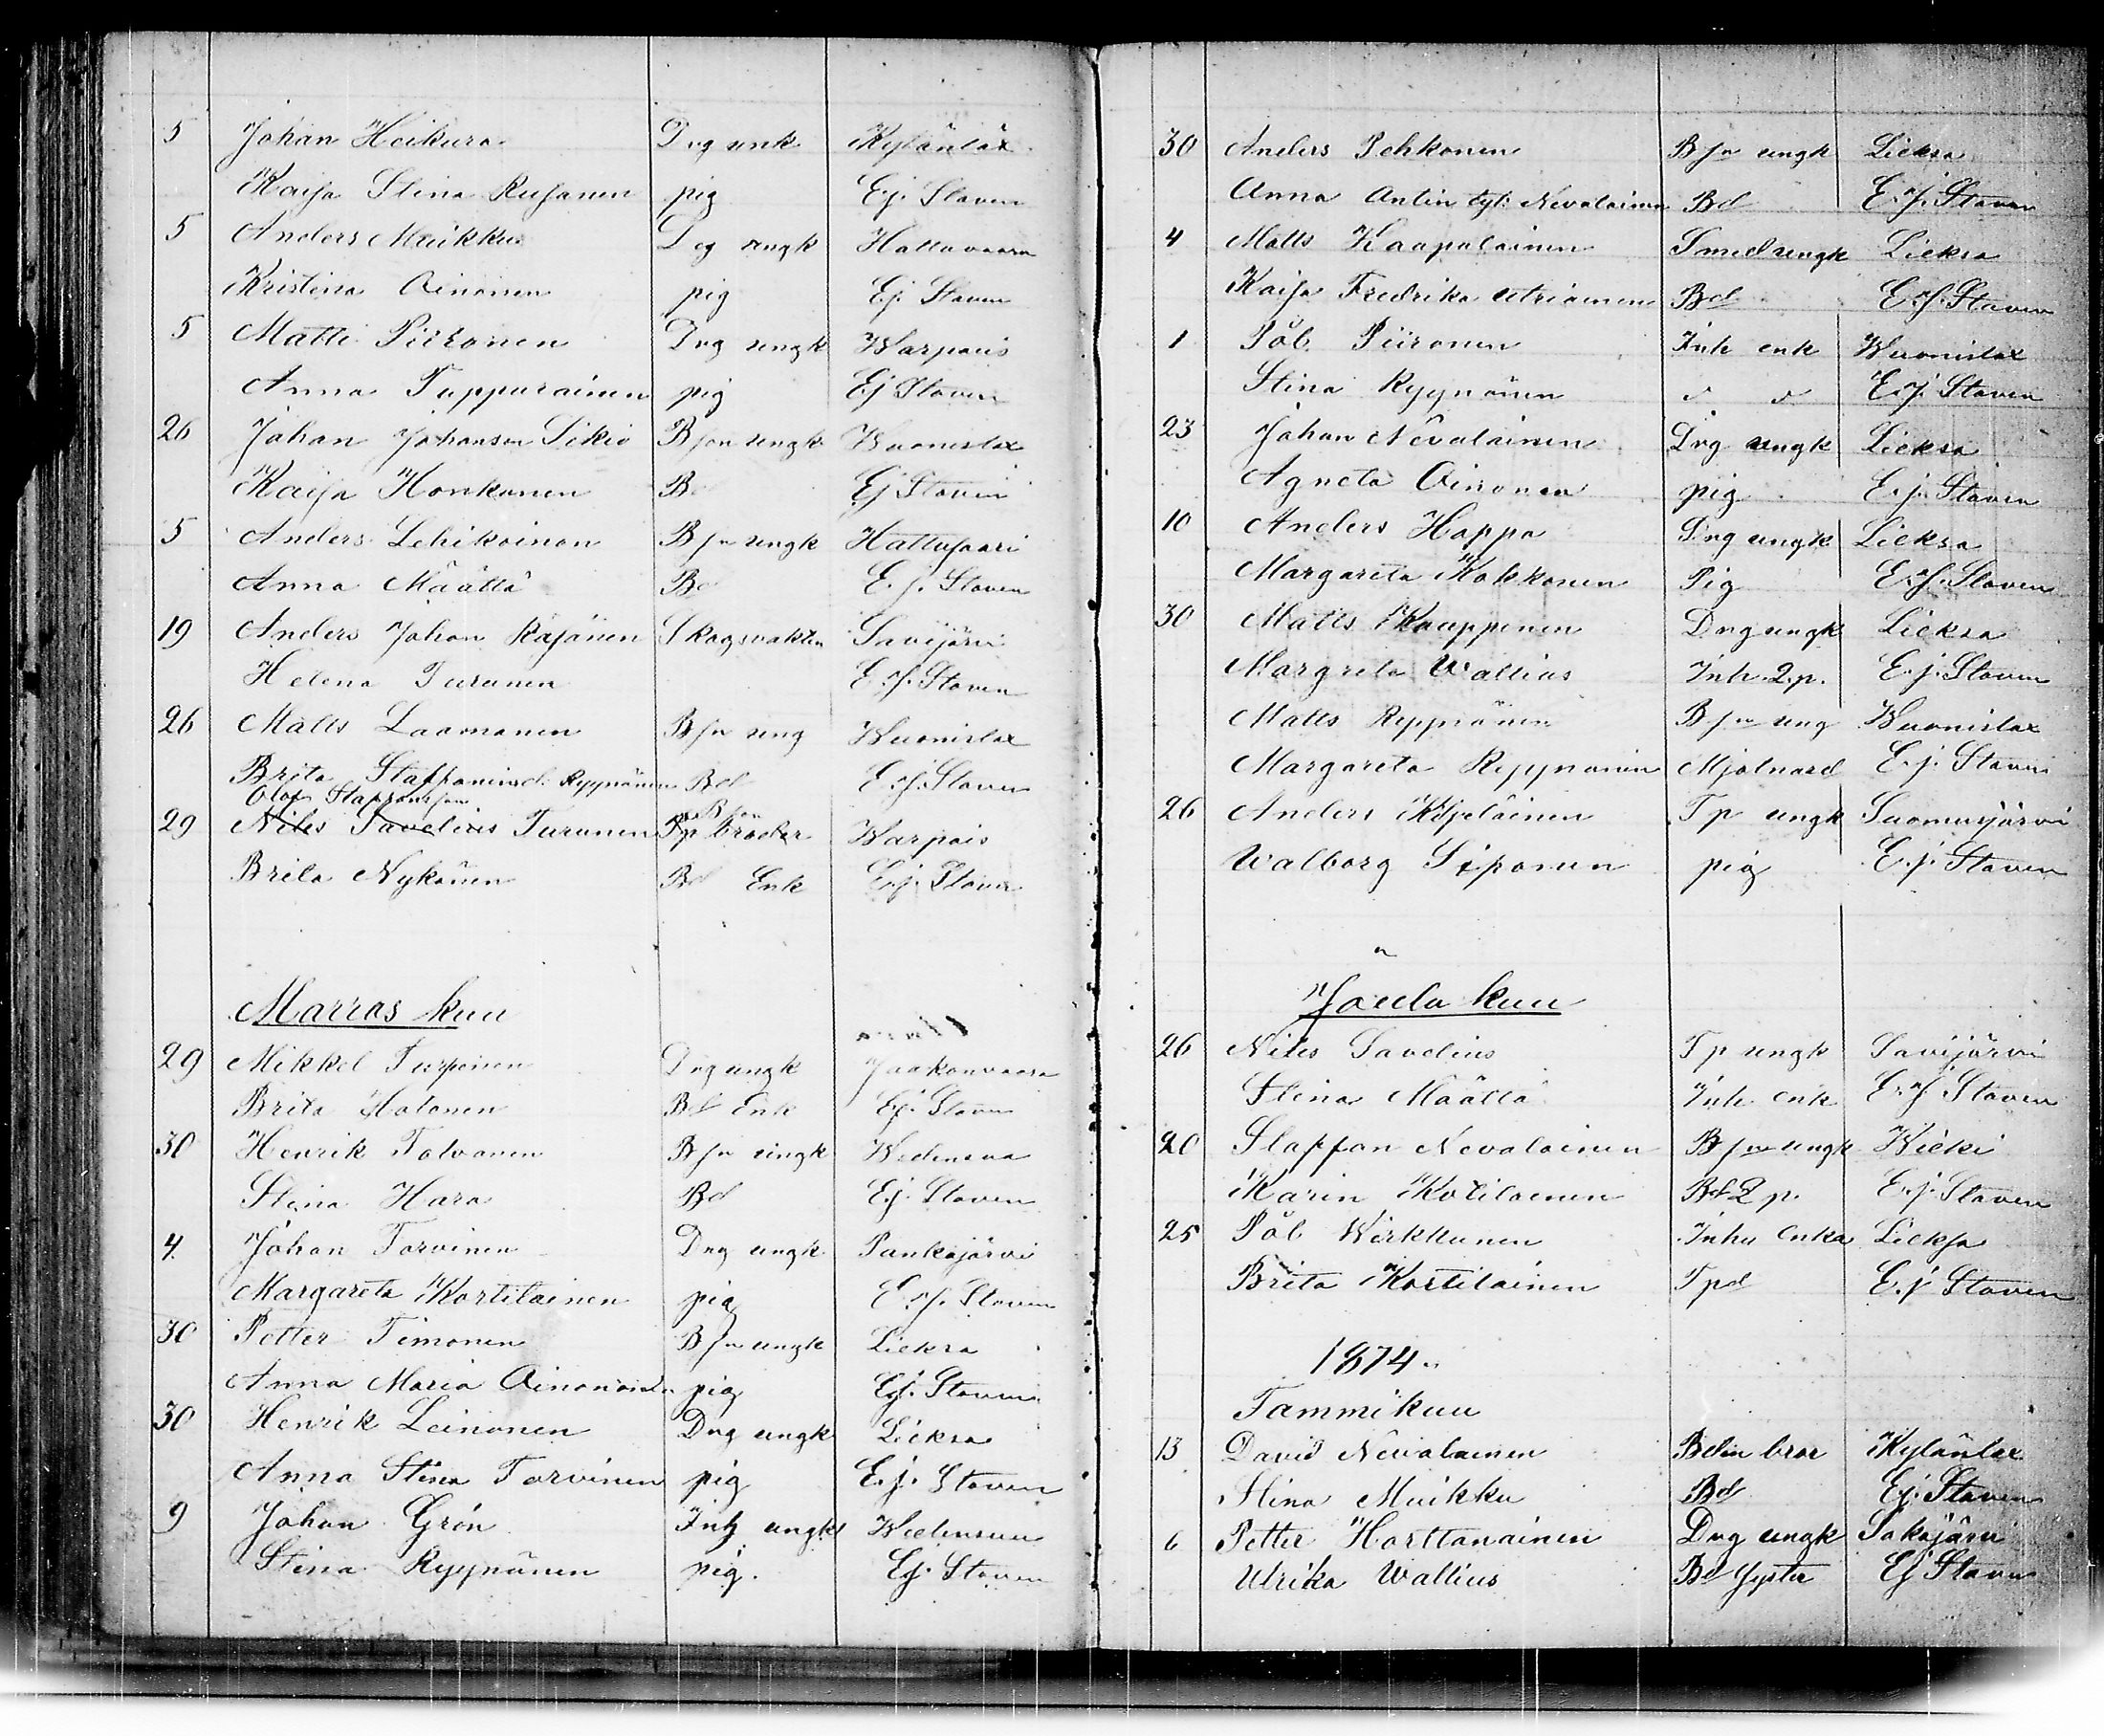 5 Johan Heikura Drg unk Kylänlax
Kaisa Stina Rusanen pig Ej Slaven
5 Anders Muikku Drg ungk Hattuvaara
Kristina Oinonen pig Ej Slaven
5 Matti Piironen Drg ungk Warpois
Anna Tuppurainen pig Ej Slaven
26 Johan Johansson Sikiö Bson ungk Wuonislax
Kaisa Honkanen B Ej Slaven
5 Anders Lehikoinen Bsn ungk Hattusaari
Anna Määttä Bd E.j. Slaven
19 Anders Johan Kajanen Skogsvakten Savijärvi
Helena Turunen E.j. Slaven
26 Matts Laamanen Bsn ung Wuonislax
Brita Staffansd: Ryynänen Bd E.j. Slaven
Olof Staffansson Bson
29 Nils Pavelius Turunen Tp broder Warpois
Brita Nykänen Bd Enk E.j. Slaven
Marras kuu
29 Mikkel Turpeinen Drg ungk Jaakonvaara
Brita Hatonen Bd Enk Ej. Slaven
30 Henrik Tolvanen Bsn ungk Wiedensuu
Stina Hara Bd Ej Slaven
4. Johan Torvinen Drg ungk Pankajärvi
Margareta Kortilainen pig E.j. Slaven
30 Petter Timonen Bsn ungk Lieksa
Anna Maria Oinonen pig Ej. Slaven
30 Henrik Leinonen Drg ungk Lieksa
Anna Stina Torvinen pig E.j. Slaven
9 Johan Grön Inh ungk Wiedensuu
Stina Ryynänen pig. Ej. Slaven
30 Anders Pehkonen Bsn ungk Lieksa
Anna Antin tyt: Nevalainen Bd E.j. Slaven
4 Matts Kaapalainen Smed ungk Lieksa
Kaisa Fredrika Utriainen Bd E.j. Slaven
1 Pål Piironen Inh enk Wuonislax
Stina Ryynänen " " E.j. Slaven
23 Johan Nevalainen Drg ungk Lieksa
Agneta Oinonen pig E.j. Slaven
10 Anders Happo Drg ungk Lieksa
Margareta Kokkonen Pig E.j. Slaven
30 Matts Kauppinen Drg ungk Lieksa
Margreta Wallius Inh. 2.p. E.j. Slaven
Matts Ryynänen Bsn ung Wuonislax
Margareta Ryynänen Mjölnard E.j. Slaven
26 Anders Kypeläinen Tp ungk Suomusjärvi
Walborg Siponen pig E.j. Slaven
Joulu kuu
26 Nils Savelius Tp ungk Savijärvi
Stina Määttä Inh enk E.j Slaven
20 Staffan Nevalainen Bsn ungk Wieki
Karin Kotilainen Bd 2 p. E.j. Slaven
25 Pål Wirkkunen Inhu Enka Lieksa
Brita Kortilainen Tpd E.j Slaven
1874.
Tammikuu
13 David Nevalainen Bdn bror Kylänlax
Stina Muikku Bd Ej. Slaven
6 Petter Horttanainen Drg ungk Sokojärvi
Ulrika Wallius Bd syster Ej Slaven